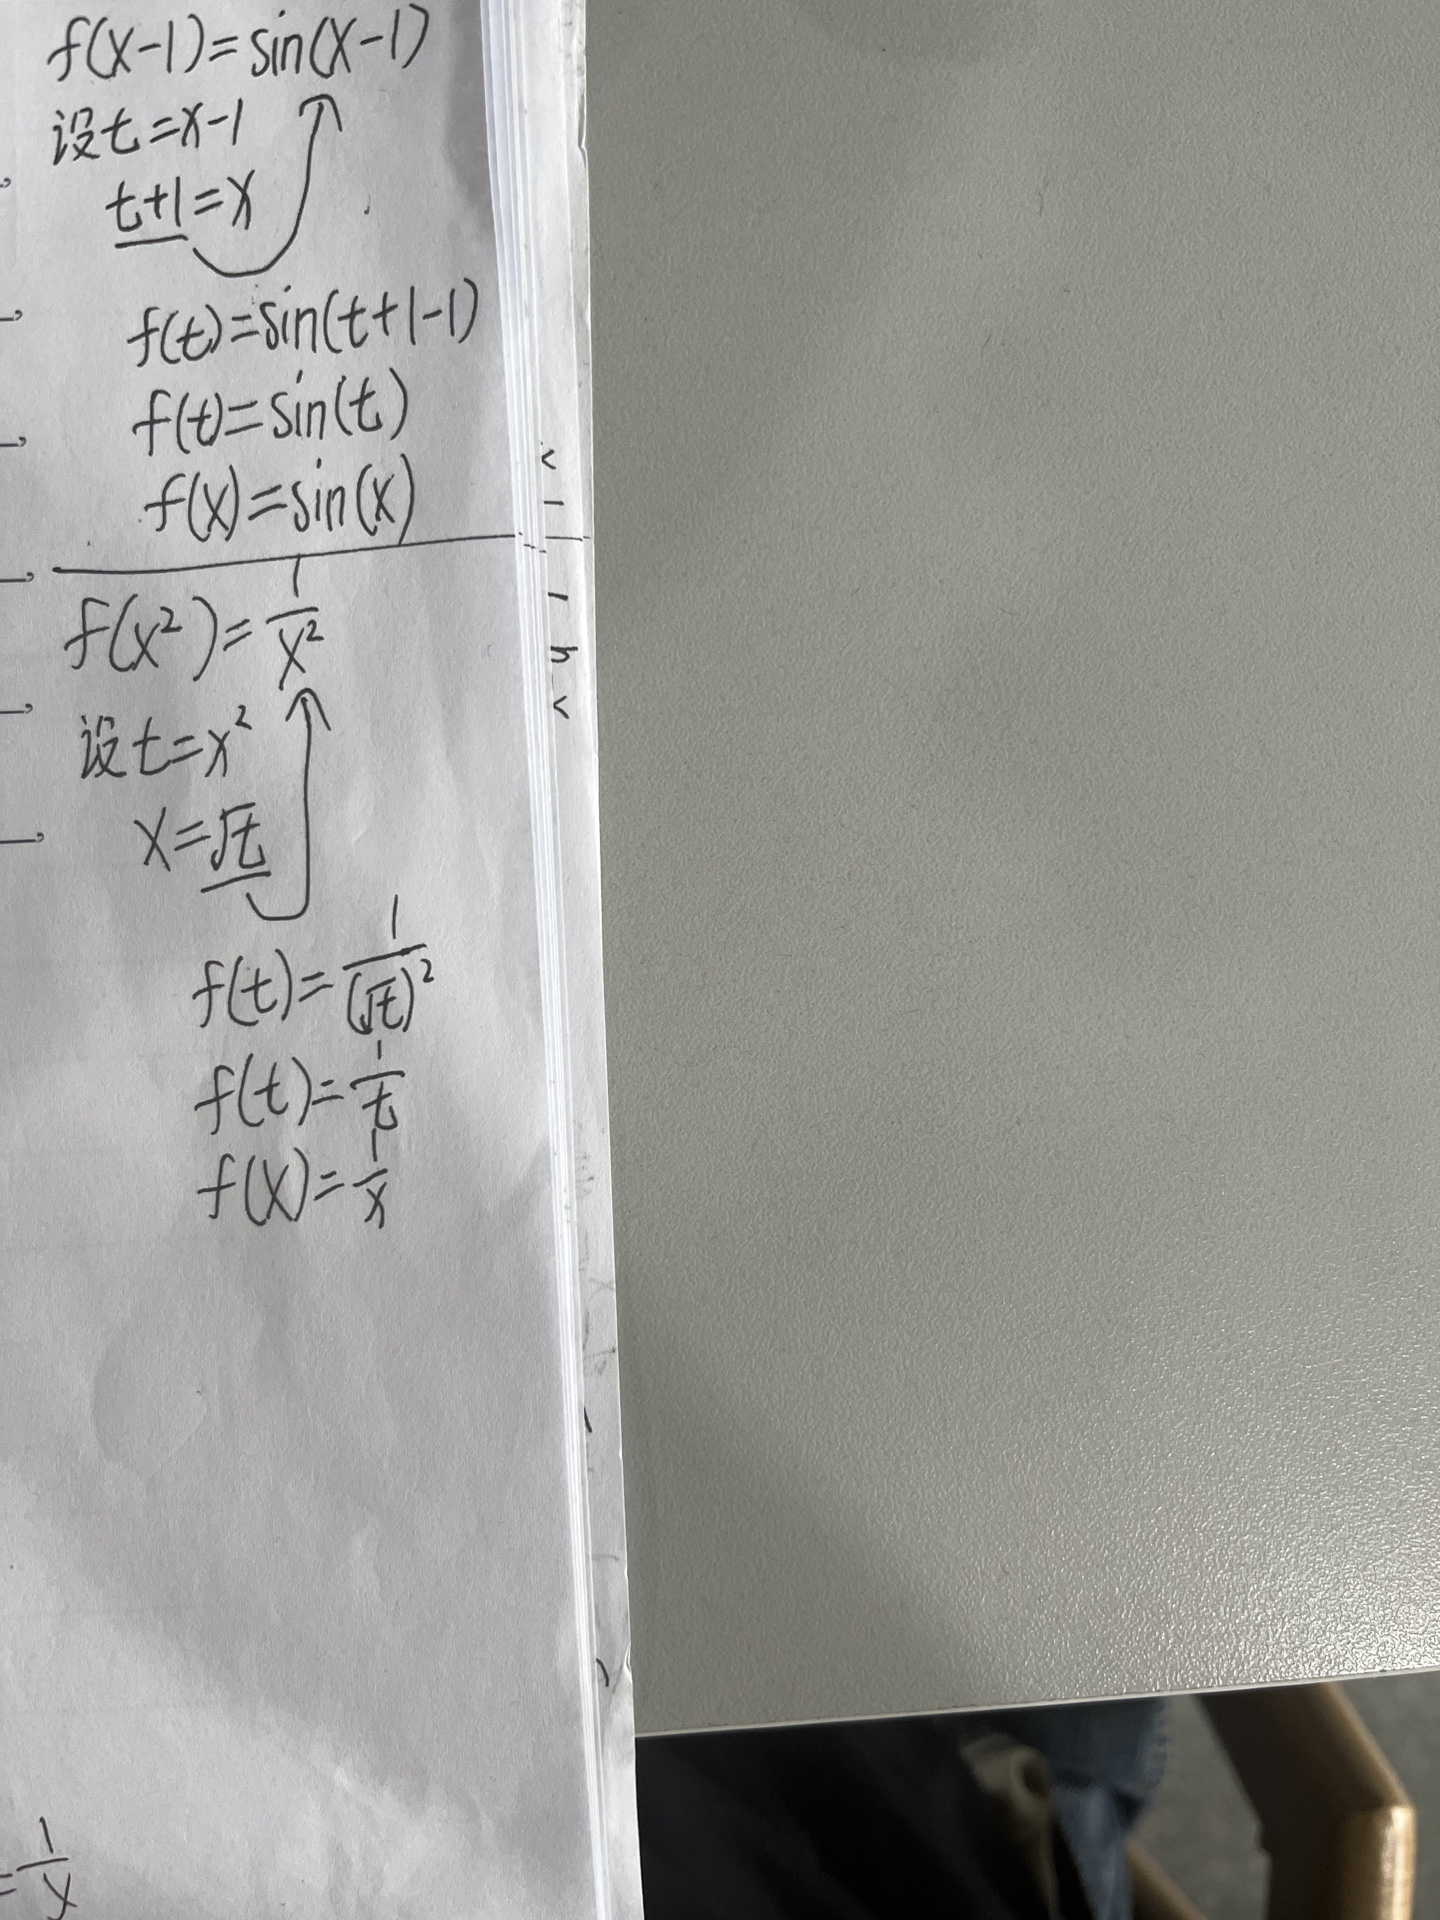 f(x-1)=sin(x-1)
设t=x-1
t+1=x
f(t)=sin(t+1-1)
f(t)=sin(t)
f(x)=sin(x)
f(x²)=1/x²
设t=x²
x=√t
f(t)=1/(√t)²
f(t)=1/t
f(x)=1/x
=1/x